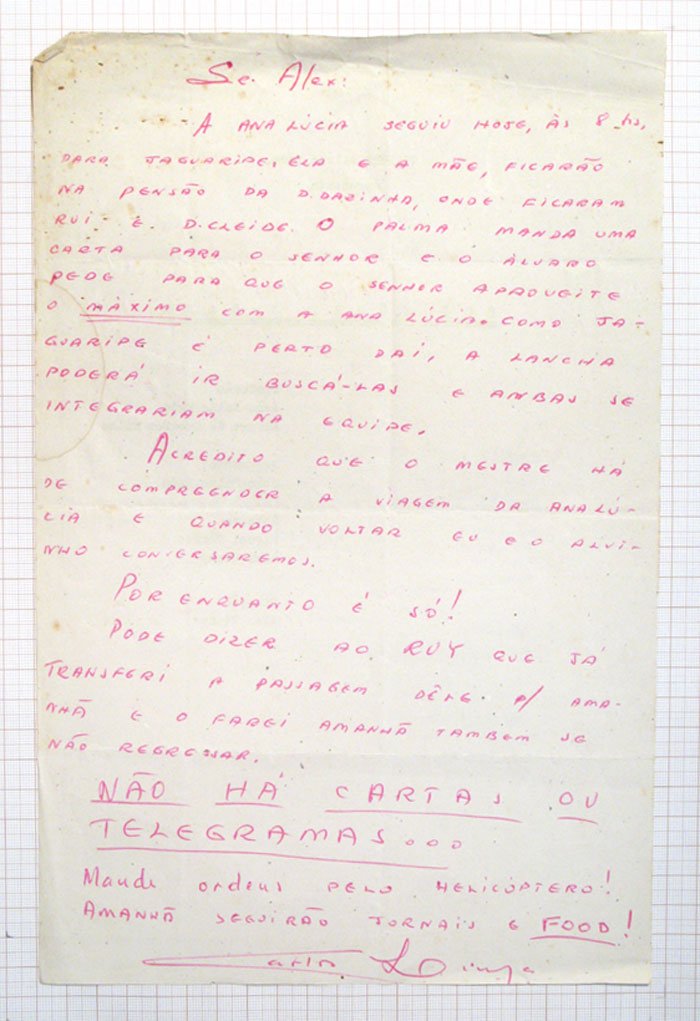 Sr. Alex:
A ANA LÚCIA SEGUIU HOJE, ÀS 8 hs,
PARA JAGUARIPE. ELA E A MÃE, FICARÃO
NA PENSÃO DA D. DAZINHA, ONDE FICARAM
RUI E D. CLEIDE. O PALMA MANDA UMA
CARTA PARA O SENHOR E O ÁLVARO
PEDE PARA QUE O SENHOR APROVEITE
O MÁXIMO COM A ANA LÚCIA. COMO JA-
GUARIPE É PERTO DAÍ, A LANCHA
PODERÁ IR BUSCÁ-LAS E AMBAS SE
INTEGRARIAM NA EQUIPE.
ACREDITO QUE O MESTRE HÁ
DE COMPREENDER A VIAGEM DA ANA LÚ-
CIA E QUANDO VOLTAR EU E O ALVI-
NHO CONVERSAREMOS.
POR ENQUANTO É SÓ!
PODE DIZER AO RUY QUE JÁ
TRANSFERI A PASSAGEM DÊLE P/ AMA-
NHÃ E O FAREI AMANHÃ TAMBEM SE
NÃO REGRESSAR.
NÃO HÁ CARTAS OU
TELEGRAMAS...
Mande ordens PELO HELICÓPTERO!
AMANHÃ SEGUIRÃO JORNAIS E FOOD!